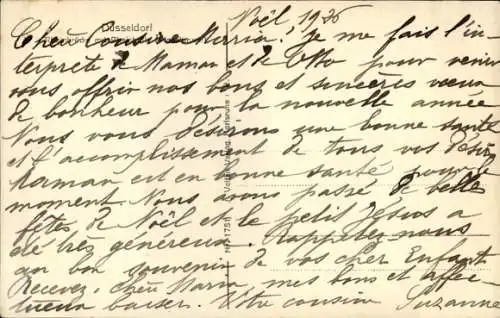 Düsseldorf
Noël, 1936
Chère Cousine Maria, Je me fais l'in-
terprète de Maman et de Otto pour venir
vous offrir nos bons et sincères vœux
de bonheur pour la nouvelle année
Nous vous désirons une bonne santé
et l'accomplissement de tous vos désirs
Maman est en bonne santé pour le
moment. Nous avons passé de belle
fêtes de Noël et le petit Jésus a
été très généreux. Rappelez-nous
au bon souvenir de vos cher Enfants
Recevez, chère Maria, mes bons et affec-
tueux baiser. Votre cousine Suzanne